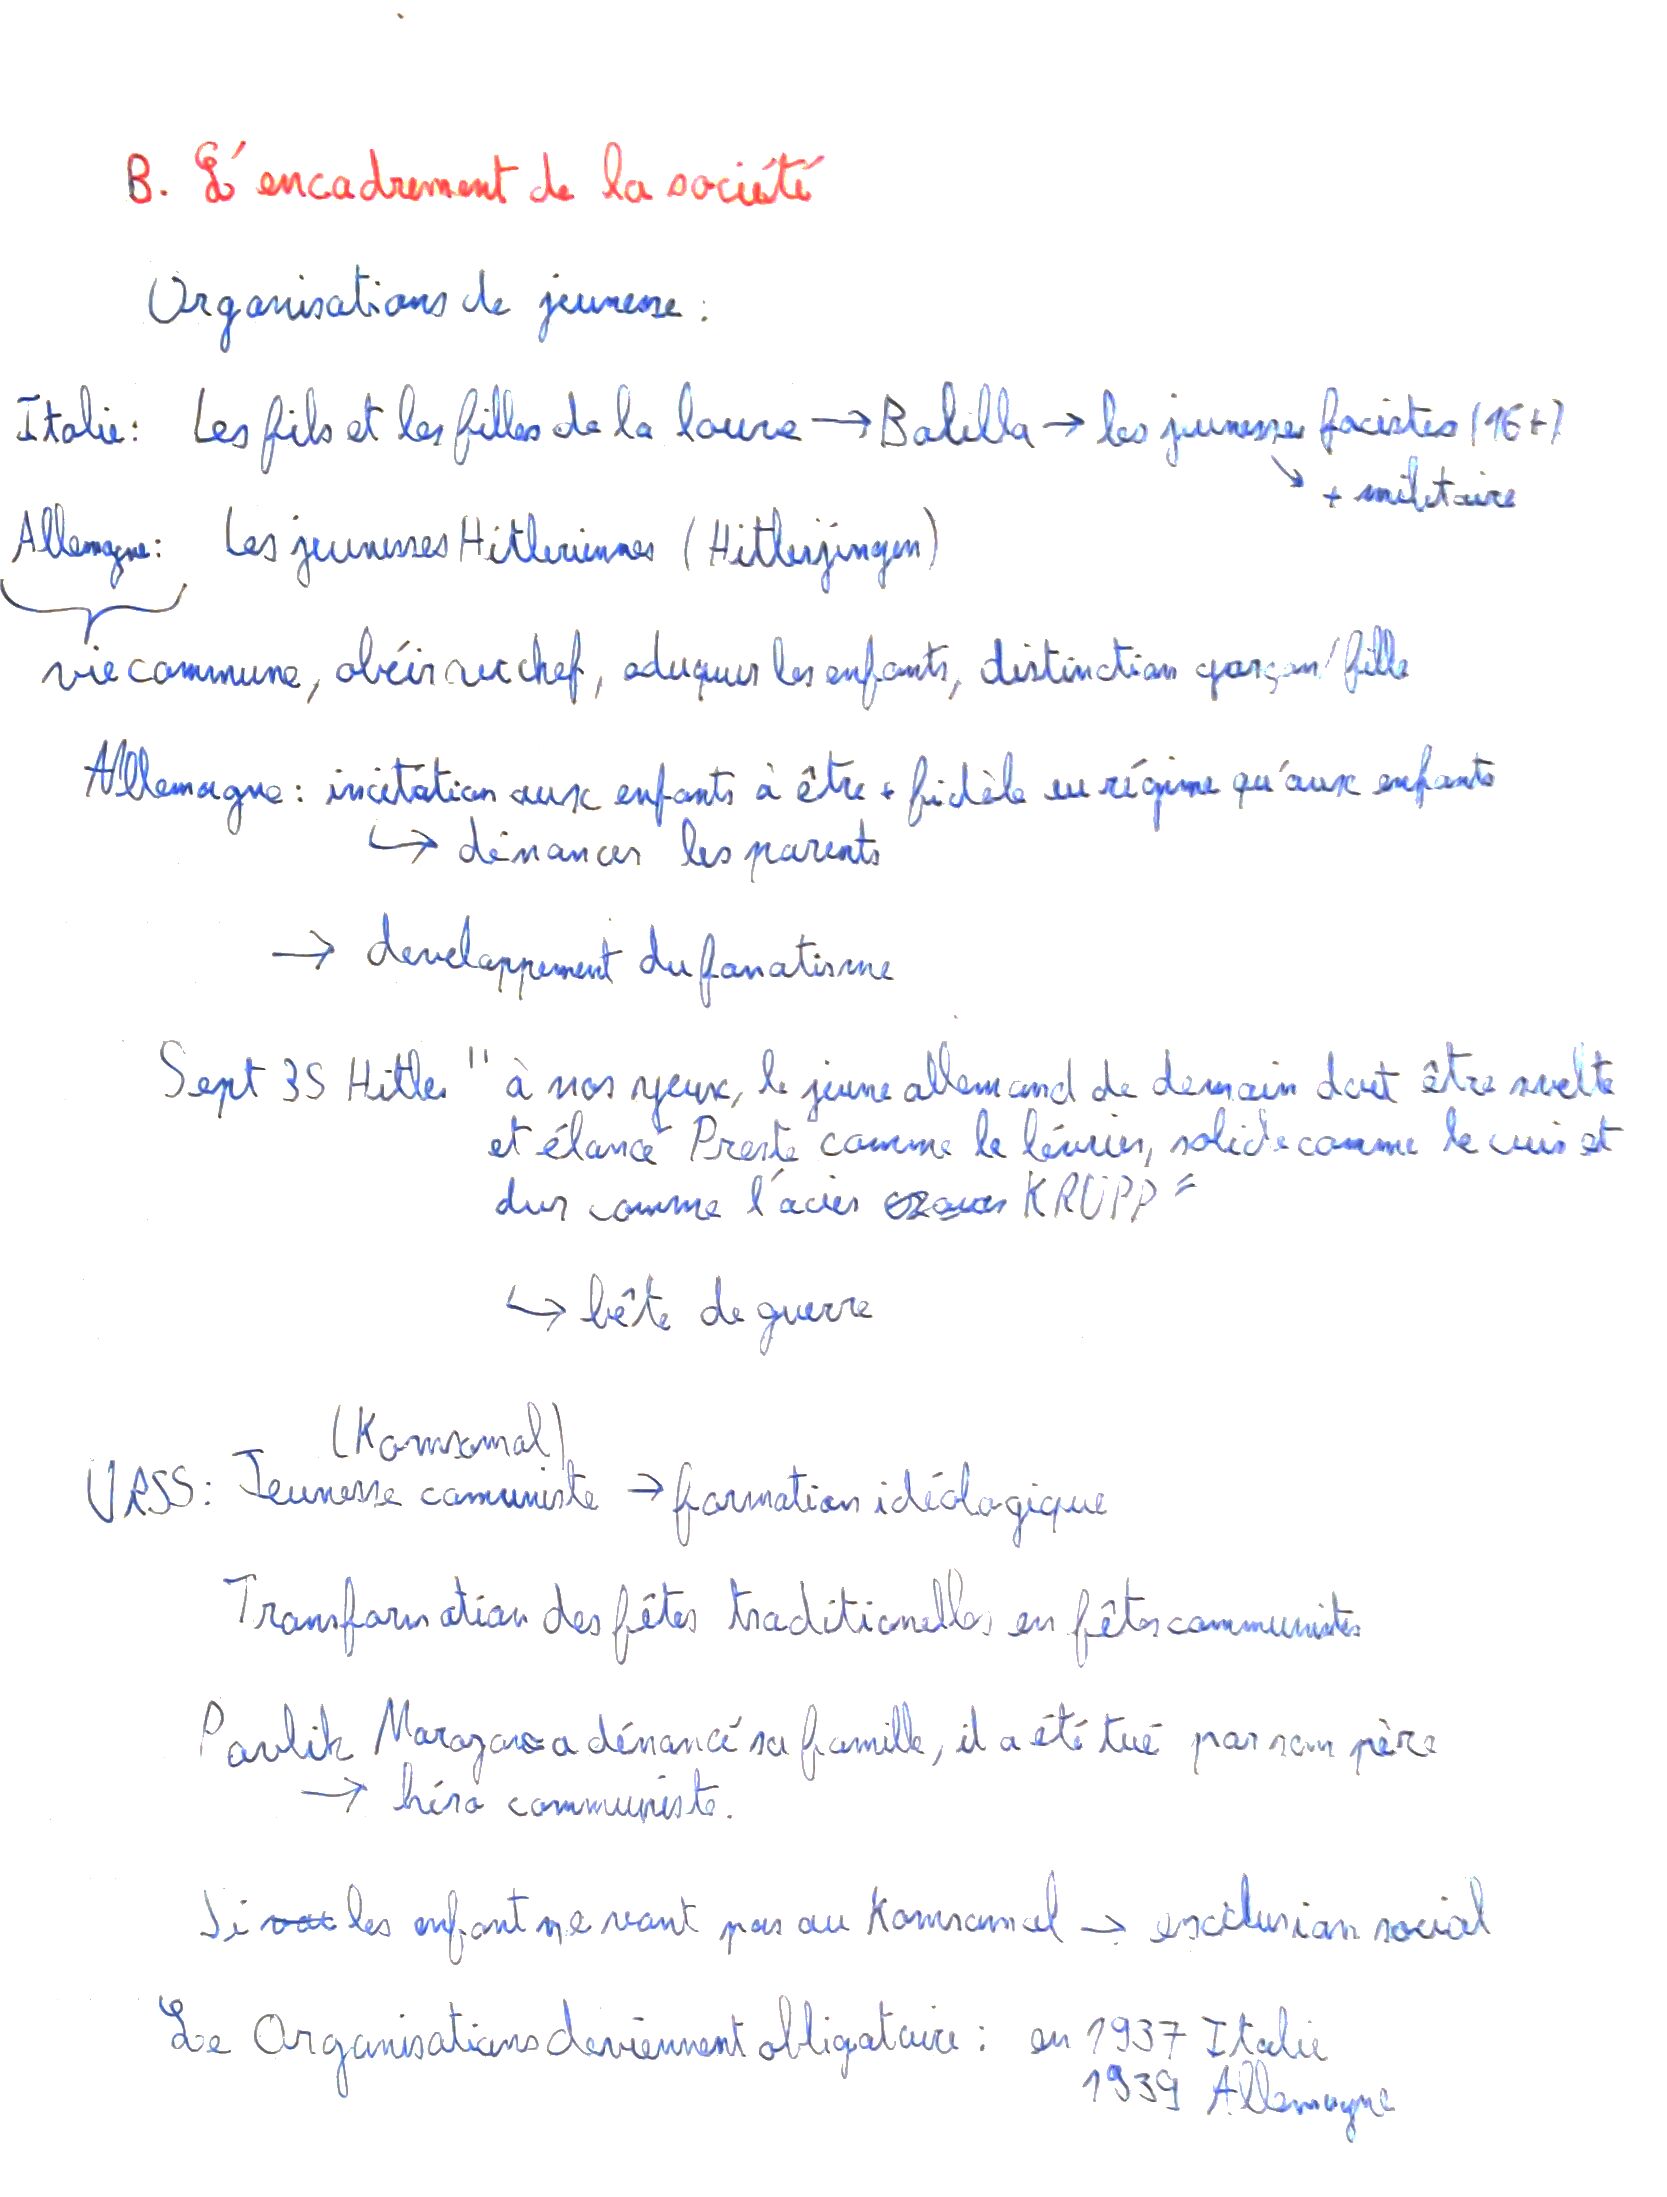 B. L'encadrement de la société
Organisations de jeunesse :
Italie : Les fils et les filles de la louve → Balilla → les jeunesses facistes (16+)
↘ + militaire
Allemagne : Les jeunesses Hitleriennes (Hitlerjingen)
vie commune, obéir au chef, eduquer les enfants, distinction garçon/fille
Allemagne : incitation aux enfants à être + fidèle au régime qu'aux enfants
↳ dénoncer les parents
→ developpement du fanatisme
Sept 35 Hitler "à nos yeux, le jeune allemand de demain doit être svelte
et élancé Preste comme le lévrier, solide comme le cuir et
dur comme l'acier KRUPP"
↳ bête de guerre
(Komsomol)
URSS : Jeunesse comuniste → formation idéologique
Transformation des fêtes traditionelles en fêtes communistes
Pavlik Morozov a dénoncé sa famille, il a été tué par son père
→ héro communiste.
Si les enfant ne vont pas au Komsomol → exclusion social
Le Organisations deviennent obligatoire : en 1937 Italie
1939 Allemagne